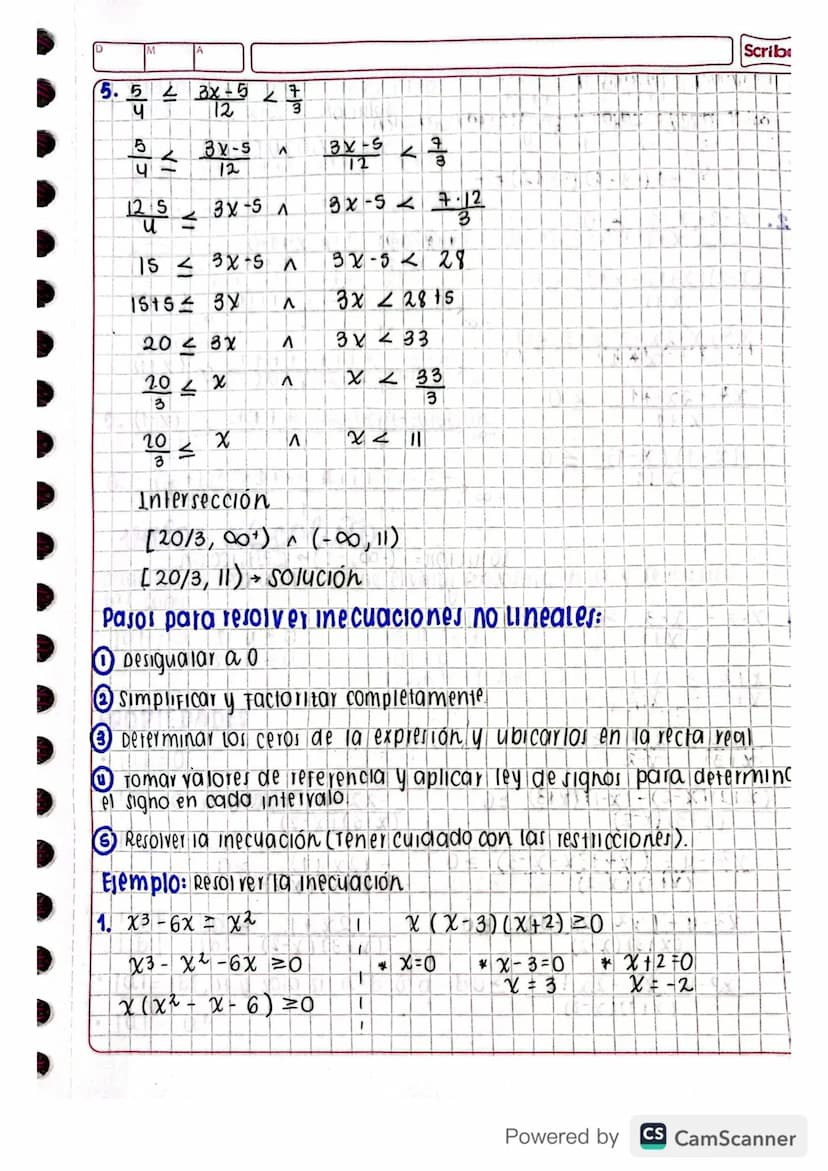 D M A
Scribe
5. 5/4 ≤ 3x-5/12 < 7/3
5/4 ≤ 3x-5/12 ∧ 3x-5/12 < 7/3
12·5/4 ≤ 3x-5 ∧ 3x-5 < 7·12/3
15 ≤ 3x-5 ∧ 3x-5 < 28
15+5 ≤ 3x ∧ 3x < 28+5
20 ≤ 3x ∧ 3x < 33
20/3 ≤ x ∧ x < 33/3
20/3 ≤ x ∧ x < 11
Intersección
[20/3, ∞⁺) ∧ (-∞, 11)
[20/3, 11) → solución
Pasos para resolver inecuaciones no lineales:
① Desigualar a 0
② Simplificar y Factorizar completamente
③ Determinar los ceros de la expresión y ubicarlos en la recta real
④ Tomar valores de referencia y aplicar ley de signos para determinc
el signo en cada intervalo.
⑤ Resolver la inecuación (Tener cuidado con las restricciones).
Ejemplo: Resolver la inecuación
1. x³ - 6x ≥ x² x(x-3)(x+2) ≥ 0
x³ - x² - 6x ≥ 0 * x=0 * x-3=0 * x+2=0
x = 3 x = -2
x(x² - x - 6) ≥ 0
Powered by CS CamScanner